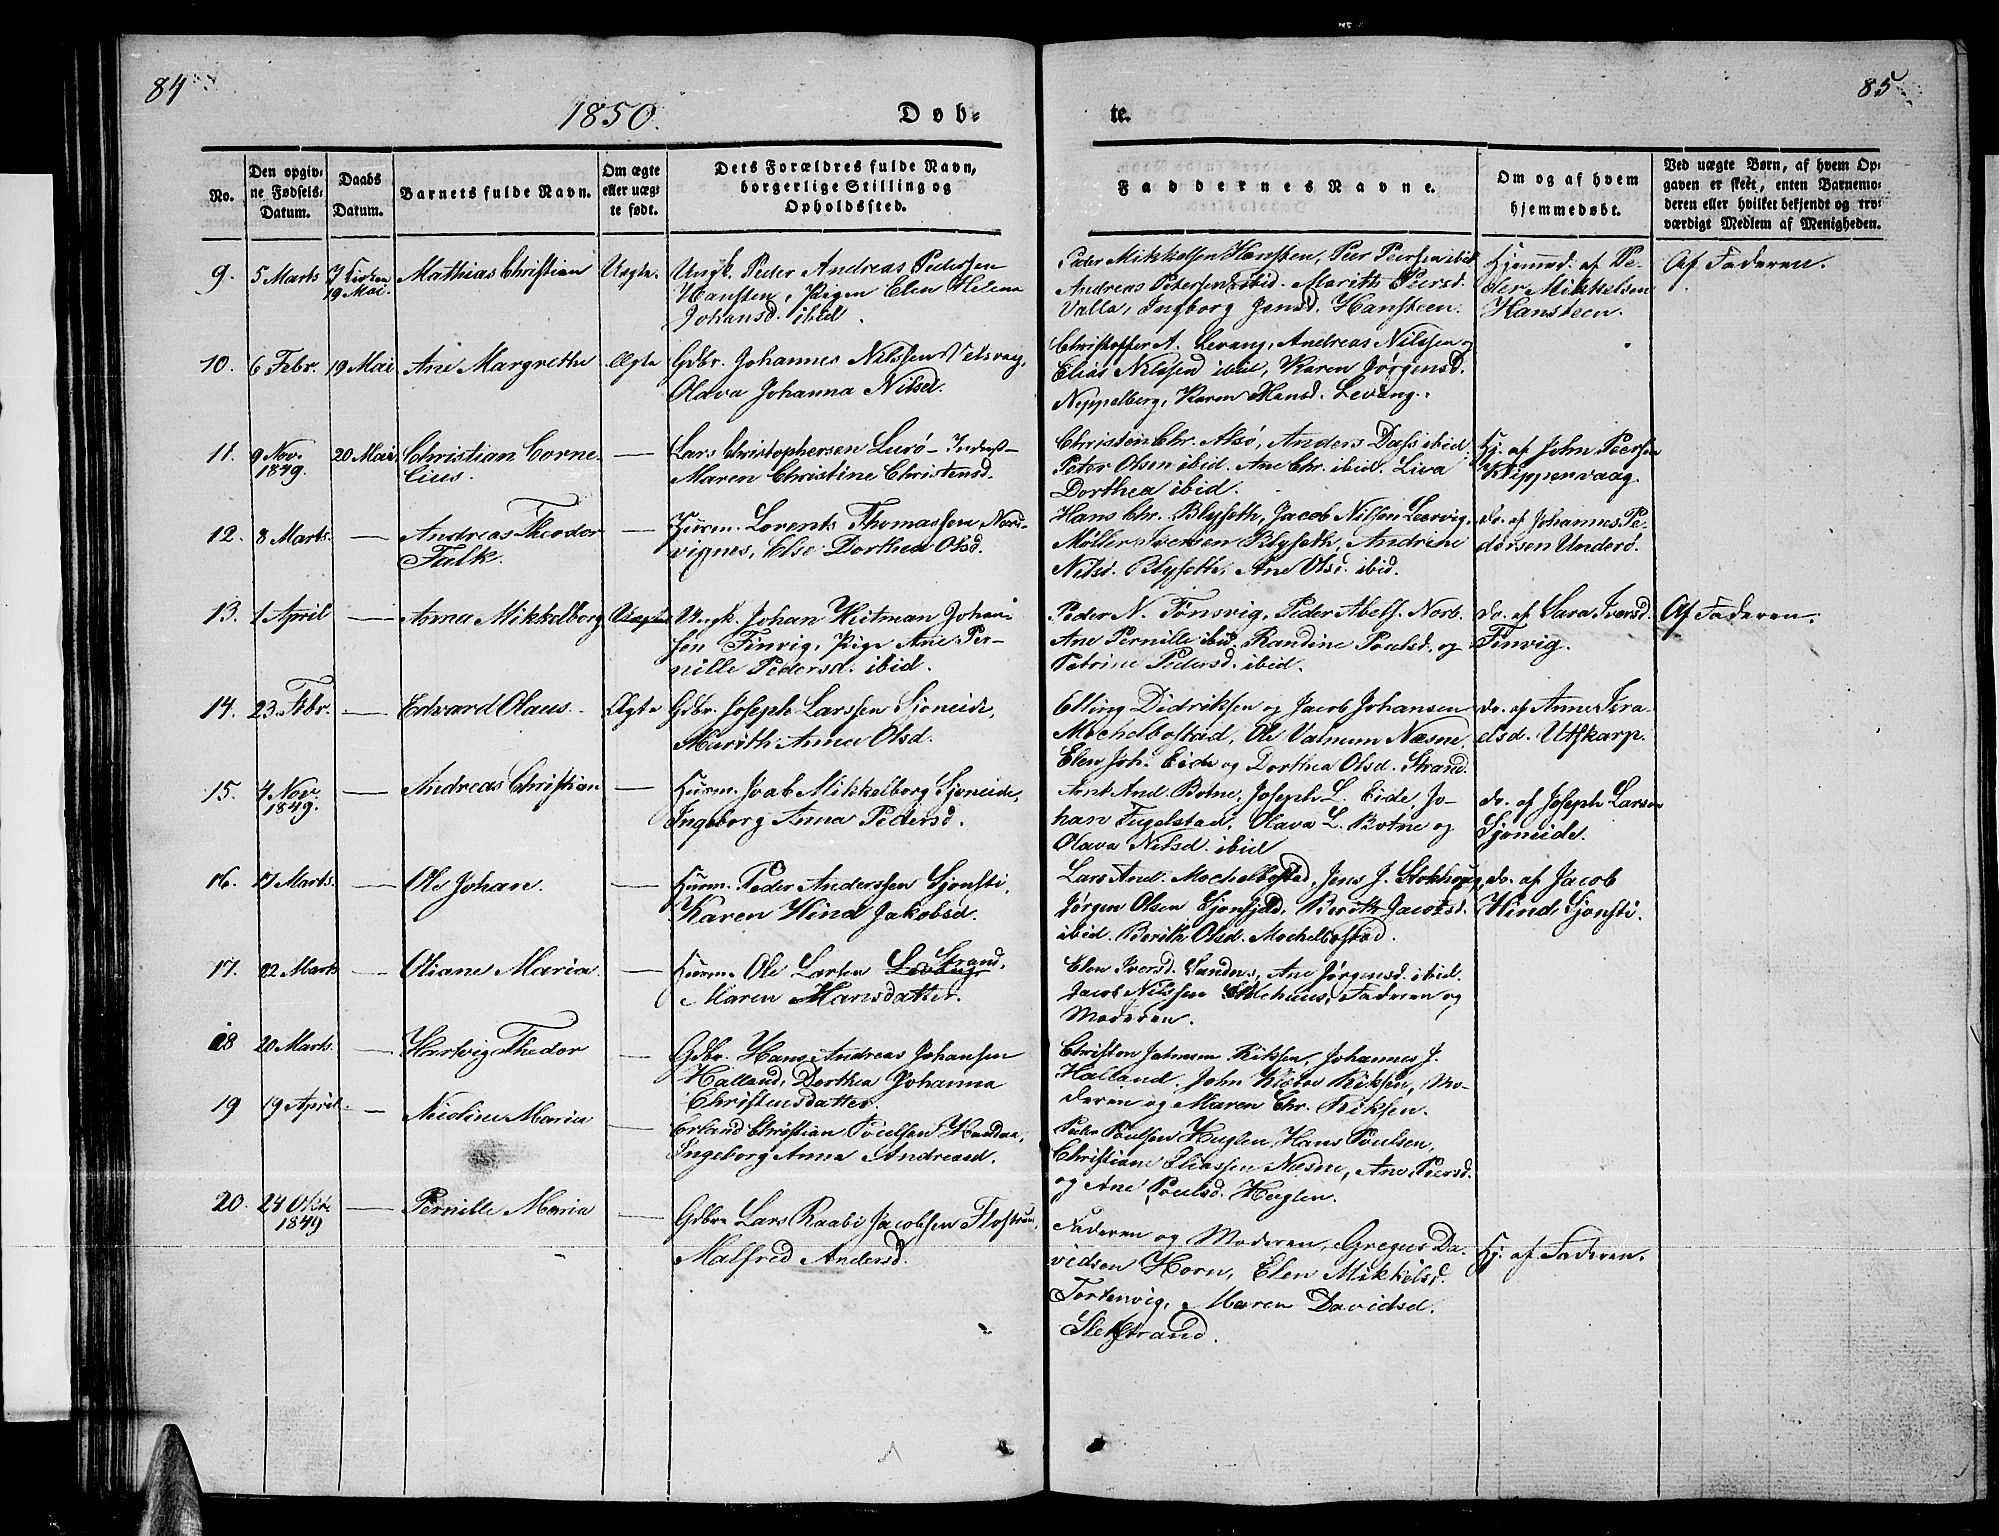 84
1850.
Døb-
No.
Den opgiv-
ne Fødsels-
Datum.
Daabs
Datum.
Barnets fulde Navn.
Om ægte
eller uæg-
te født.
Dets Forældres fulde Navn,
borgerlige Stilling og
Opholdssted.
9.
5 Marts
19 Mai.
Mathias Christian
Uægte.
Ungk. Peder Andreas Pedersen
Hansteen, Pigen Elen Helena
Johansd. ibid.
10.
6 Febr.
19 Mai
Ane Margrethe
Ægte
Gdbr. Johannes Nilssen Vetsvaag,
Olava Johanna Nilsd.
11.
9 Nov.
1849.
20 Mai
Christian Corne-
lius.
—
Lars Christophersen Lurø - Inderst -
Maren Christine Christensd.
12.
8 Marts.
—
Andreas Theodor
Falk.
—
Huusm. Lorents Thomassen Nord-
vignes, Else Dorthea Olsd.
13.
1 April
—
Anna Mikkelborg
Uægte
Ungk. Johan Heitman Johan-
sen Finvig, Pige Ane Per-
nille Pedersd. ibid.
14.
23 Febr.
—
Edvard Olaus.
Ægte
Gdbr. Joseph Larssen Sjoneide,
Marith Anna Olsd.
15.
4 Nov.
1849.
—
Andreas Christian
—
Huusm. Joab Mikkelborg Sjoneide,
Ingeborg Anna Pedersd.
16.
17 Marts.
—
Ole Johan.
—
Huusm. Peder Anderssen Sjonsti,
Karen Hind Jakobsd.
17.
22 Marts
—
Oliane Maria
—
Huusm. Ole Larsen Strand,
Maren Hansdatter.
18
20 Marts.
—
Hartvig Thedor
—
Gdbr. Hans Andreas Johansen
Halland, Dorthea Johanna
Christensdatter.
19
19 April.
—
Nicoline Maria
—
Erland Christian Poulsen Handnæ,
Ingeborg Anna Andreasd.
20.
24 Oktr.
1849
—
Pernille Maria
—
Gdbr. Lars Raabi Jacobsen Flostrand,
Malfred Andersd.
te.
85
Faddernes Navne.
Om og af hvem
hjemmedøbt.
Ved uægte Børn, af hvem Op-
gaven er skeet, enten Barnemo-
deren eller hvilket bekjendt og tro-
værdigt Medlem af Menigheden.
Peder Mikkelsen Hansteen, Peer Peersen ibid
Andreas Petersen ibid. Marith Peersd.
Valla, Ingborg Jensd. Hansteen.
Hjemmed. af Pe-
der Mikkelsen
Hansteen.
Af Faderen.
Christoffer A. Levang, Andreas Nilssen og
Elias Nilssen ibid, Karen Jørgensd.
Neppelberg, Karen Hansd. Levang.
Christen Chr. Alsø, Anders Dass ibid.
Peter Olsen ibid. Ane Chr. ibid. Liva
Dorthea ibid.
Hj. af John Peersen
Klippenvaag.
Hans Chr. Blyseth, Jacob Nilsen Leervig.
Møller Iversen Blyseth, Andrine
Nilsd. Blyseth, Ane Olsd. ibid.
do. af Johannes Pe-
dersen Underø.
Peder N. Tønsvig, Peder Abels. Norb.
Ane Pernille ibid, Randine Poulsd. og
Petrine Pedersd. ibid.
do. af Sara Iversd.
Finvig.
Af Faderen.
Elling Didriksen og Jacob Johansen
Mochelbostad, Ole Valnum Næsne,
Elen Joh. Eide og Dorthea Olsd. Strand.
do. af Anne Isra-
elsd. Utskarp.
Arnt And. Botne, Joseph L. Eide, Jo-
han Fugelstad, Olava L. Botne og
Olava Nilsd. ibid
do. af Joseph Larsen
Sjoneide.
Lars And. Mochelbostad, Jens J. Stokhoug,
Jørgen Olsen Sjonfjeld, Berith Jacobsd.
ibid. Berith Olsd. Mochelbostad.
do. af Jacob
Hind, Sjonsti.
Elen Iversd. Sandnes, Ane Jørgensd. ibid.
Jacob Nilssen Faderen og
Moderen.
Christen Riksen, Johannes J.
Halland. John Riksen, Mo-
deren og Maren Chr. Riksen.
Peder Poulsen Huglen, Hans Poulsen,
Christiane Eliassen Næsne, Ane Peersd.
og Ane Poulsd. Huglen.
Faderen og Moderen, Gregus Da-
vidsen Horn, Elen Mikkelsd.
Tortenvig, Maren Davidsd.
Sletstrand.
Hj. af Faderen.